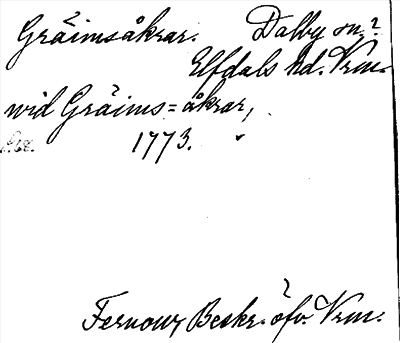 Gräimsåkrar. Dalby sn?
Elfdals hd. Vrm.
wid Gräims=åkrar,
1773.
Fernow, Beskr. öfv. Vrm.